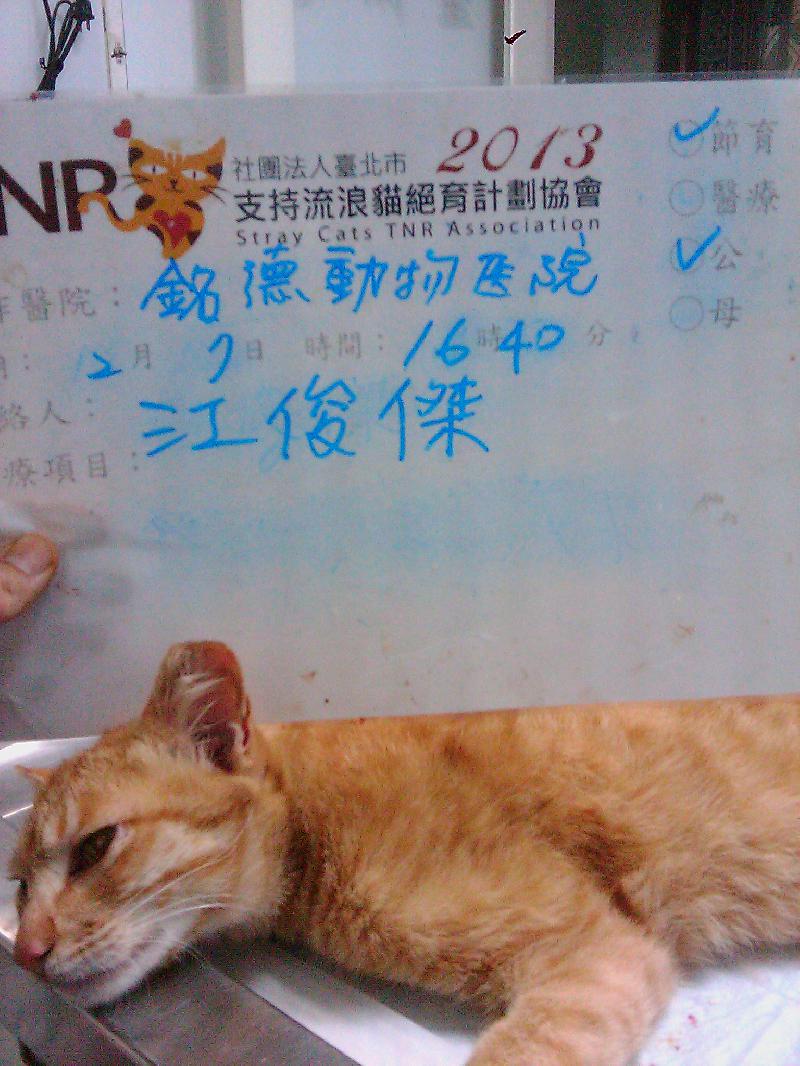 TNR
社團法人臺北市 2013
支持流浪貓絕育計劃協會
Stray Cats TNR Association
節育
醫療
公
母
作醫院：銘德動物医院
期：12月7日 時間：16時40分
絡人：江俊傑
療項目：